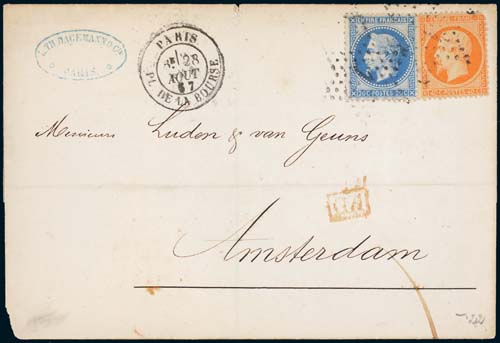 TH. BAGEMANN & CO
PARIS
PARIS
28
AOUT
67
PL. DE LA BOURSE
EMPIRE FRANÇAIS
20 C POSTES 20 C
EMPIRE FRANC
40 C POSTES 40 C
Messieurs Luden & van Geuns
P.D.
Amsterdam